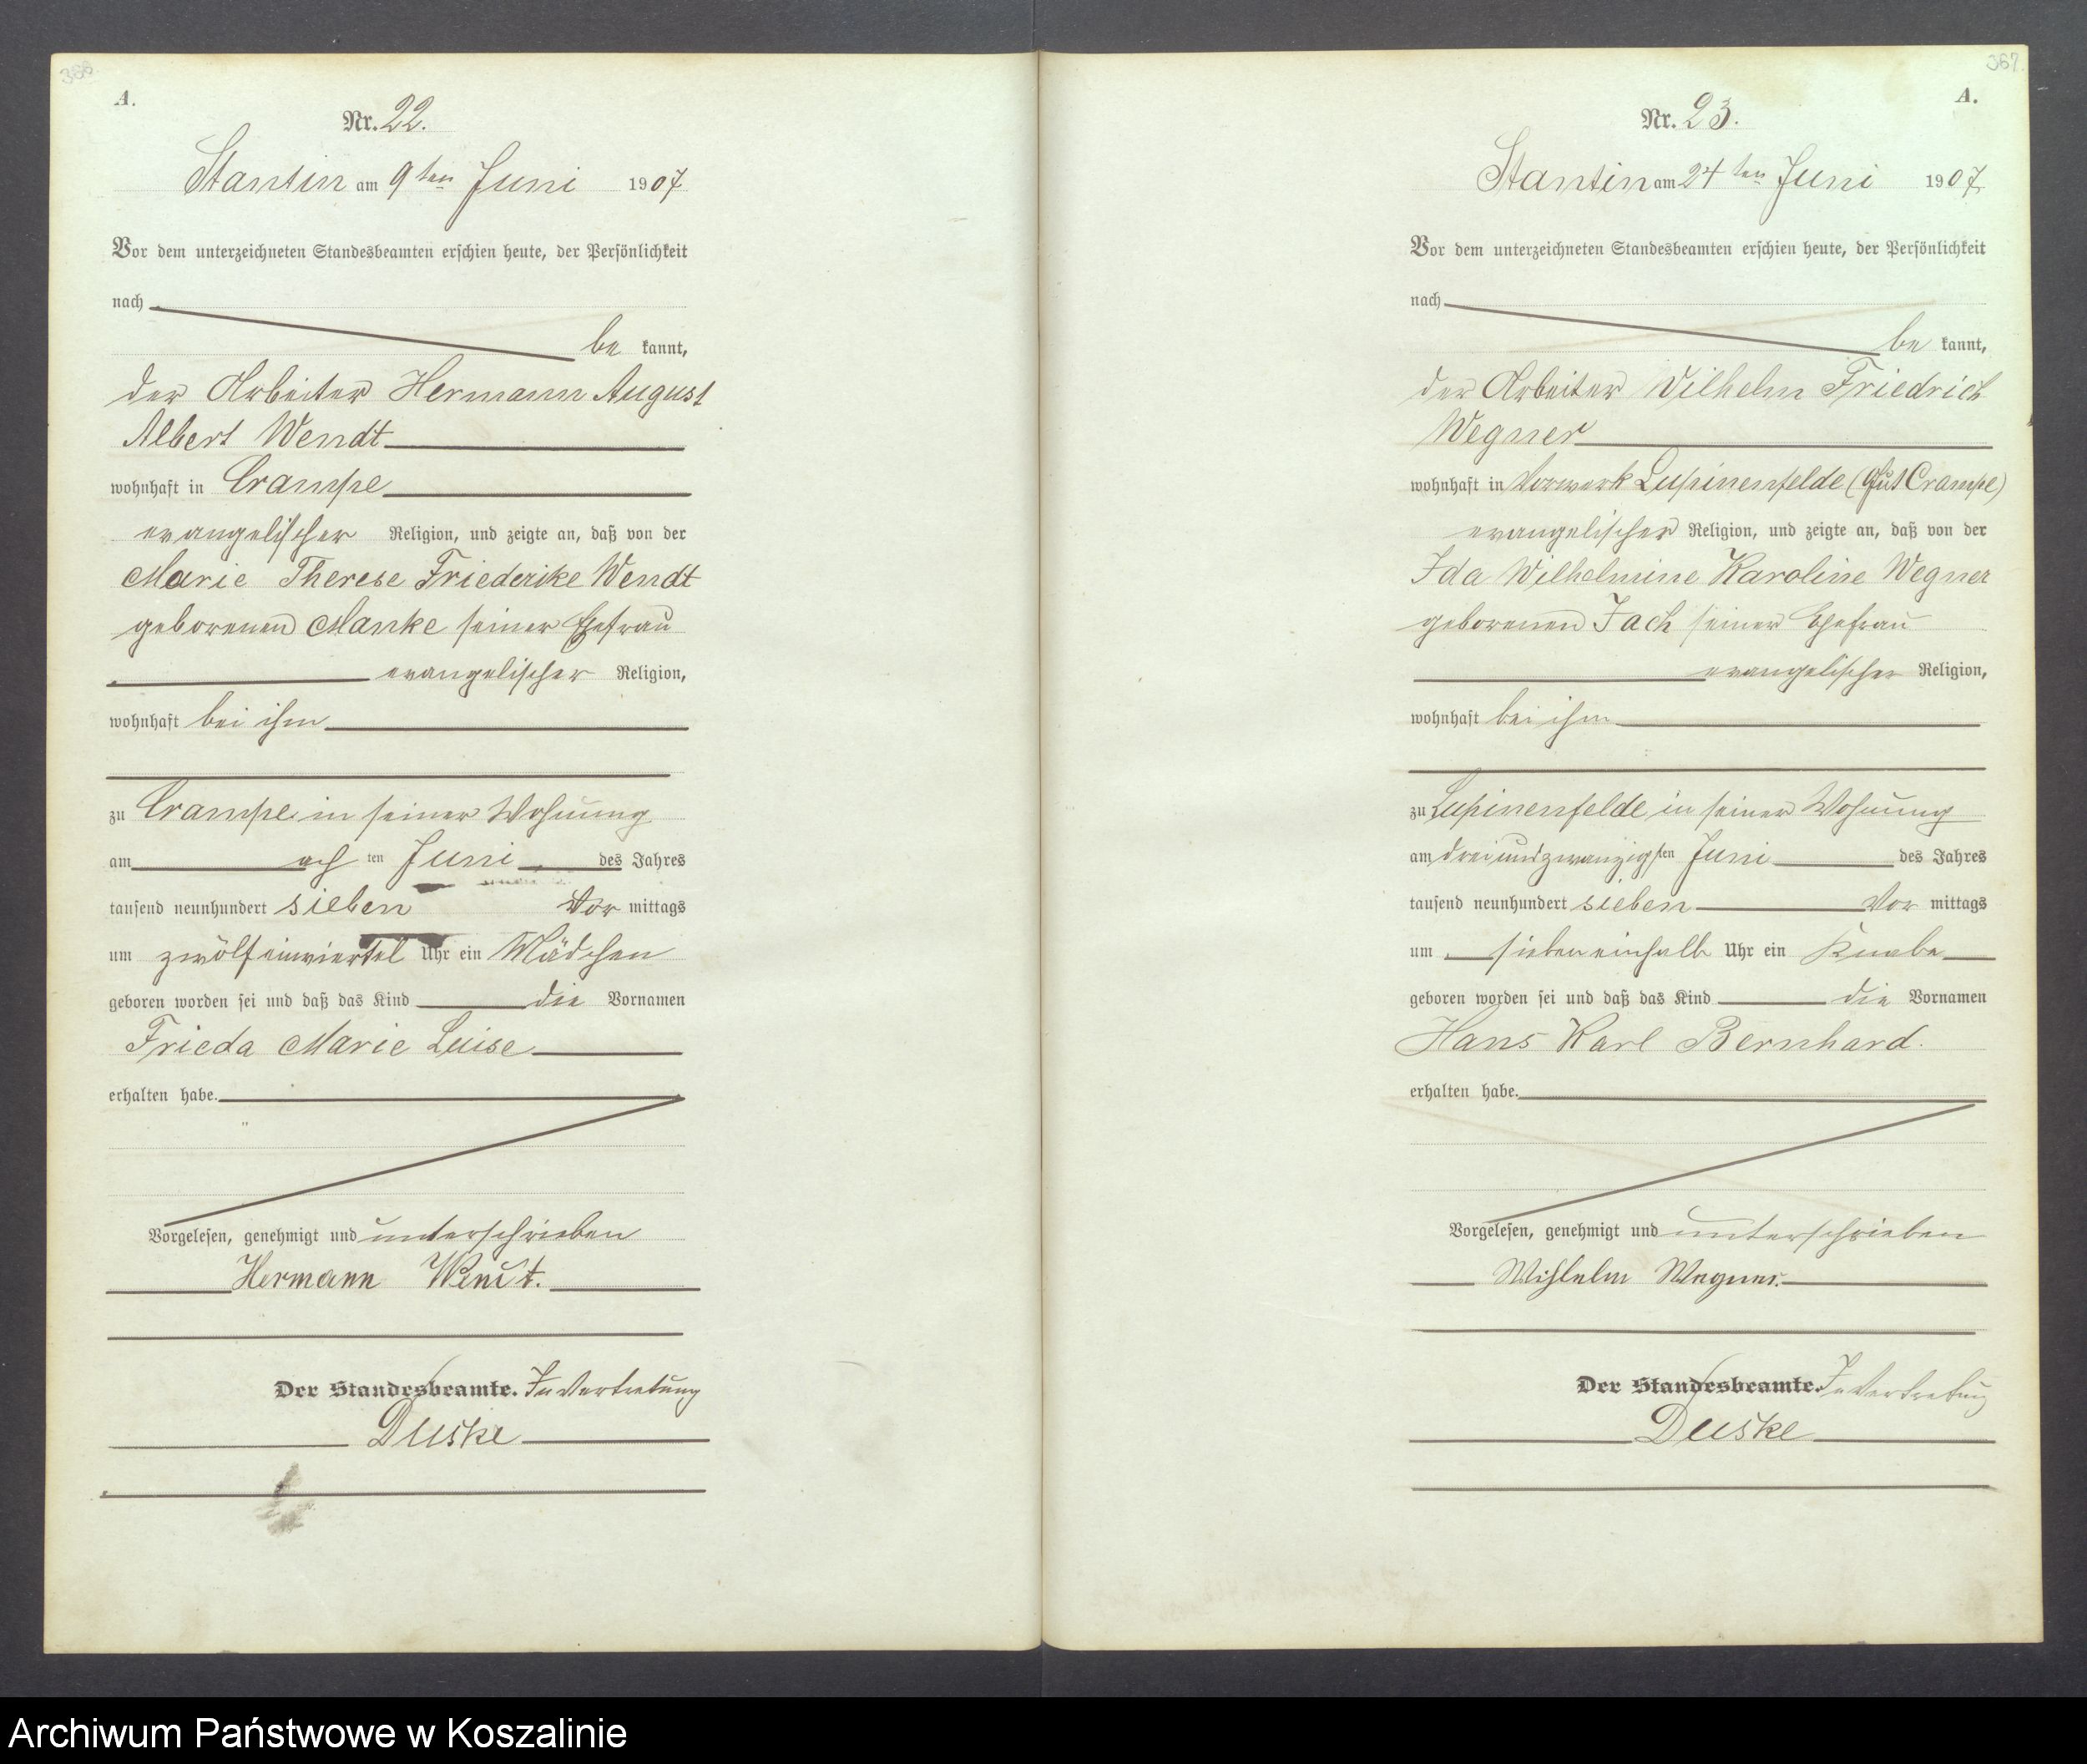 366.
A.
Nr. 22.
Stantin am 9ten Juni 1907
Vor dem unterzeichneten Standesbeamten erschien heute, der Persönlichkeit
nach
be kannt,
der Arbeiter Hermann August
Albert Wendt
wohnhaft in Crampe
evangelischer Religion, und zeigte an, daß von der
Marie Therese Friederike Wendt
geborenen Manke seiner Ehefrau
evangelischer Religion,
wohnhaft bei ihm
zu Crampe in seiner Wohnung
am ach ten Juni des Jahres
tausend neunhundert sieben Vor mittags
um zwölfeinviertel Uhr ein Mädchen
geboren worden sei und daß das Kind die Vornamen
Frieda Marie Luise
erhalten habe.
Vorgelesen, genehmigt und unterschrieben
Hermann Wendt.
Der Standesbeamte. In Vertretung
Duske
367.
A.
Nr. 23.
Stantin am 24ten Juni 1907
Vor dem unterzeichneten Standesbeamten erschien heute, der Persönlichkeit
nach
be kannt,
der Arbeiter Wilhelm Friedrich
Wegner
wohnhaft in Vorwerk Lupinenfelde (Gut Crampe)
evangelischer Religion, und zeigte an, daß von der
Ida Wilhelmine Karoline Wegner
geborenen Jach seiner Ehefrau
evangelischer Religion,
wohnhaft bei ihm
zu Lupinenfelde in seiner Wohnung
am dreiundzwanzigsten Juni des Jahres
tausend neunhundert sieben Vor mittags
um sieben einhalb Uhr ein Knabe
geboren worden sei und daß das Kind die Vornamen
Hans Karl Bernhard.
erhalten habe.
Vorgelesen, genehmigt und unterschrieben
Wilhelm Wegner.
Der Standesbeamte. In Vertretung
Duske
Archiwum Państwowe w Koszalinie